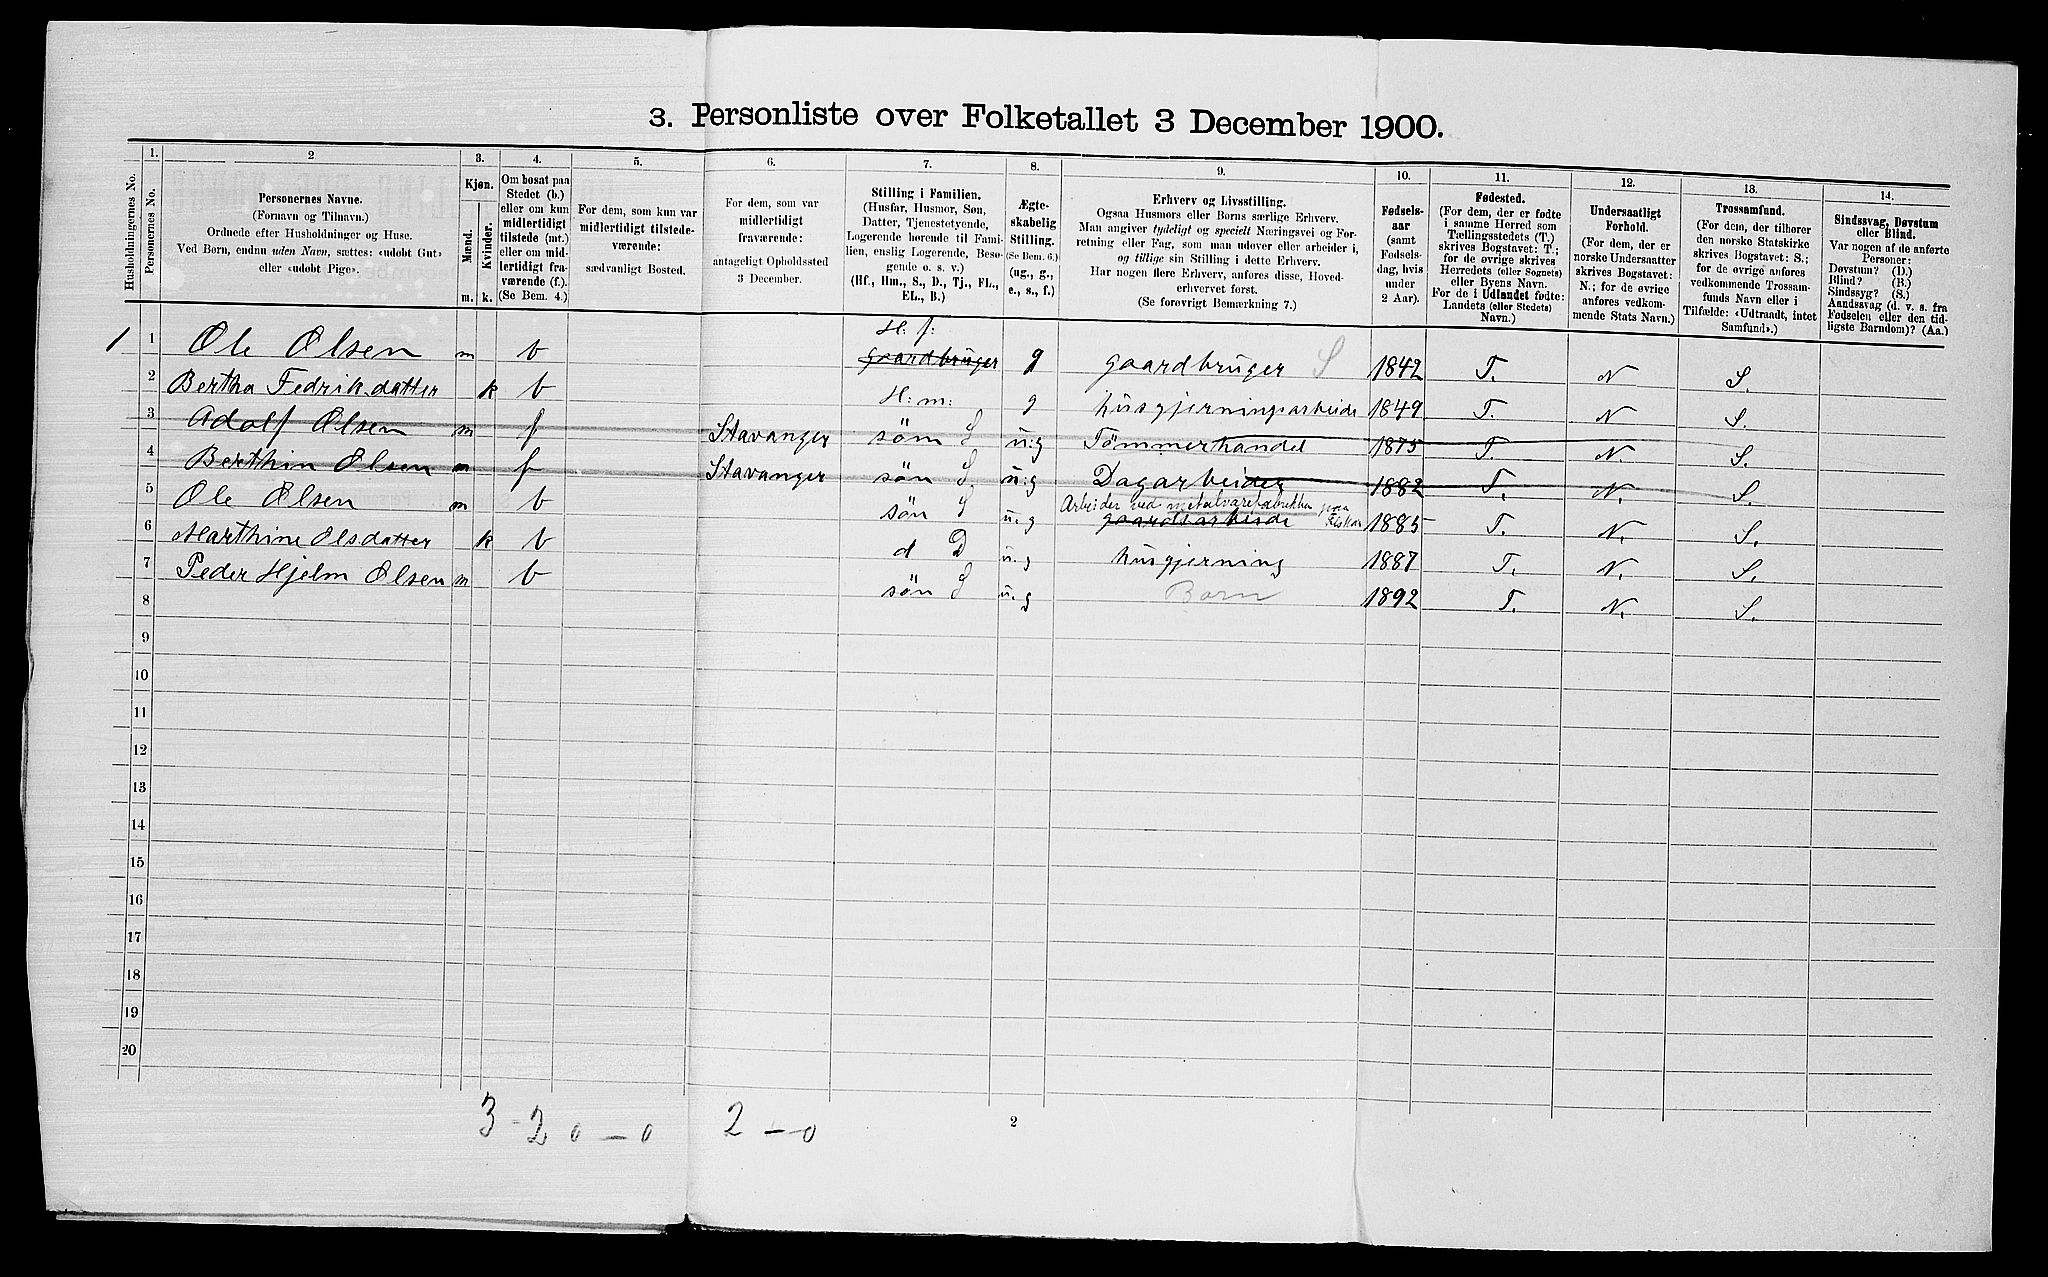 3. Personliste over Folketallet 3 December 1900.
Husholdningernes No.
1.
Personernes No.
2
Personernes Navne.
(Fornavn og Tilnavn.)
Ordnede efter Husholdninger og Huse.
Ved Børn, endnu uden Navn, sættes: «udøbt Gut»
eller «udøbt Pige».
3.
Kjøn.
Mænd.
Kvinder.
m. k.
4.
Om bosat paa
Stedet (b.)
eller om kun
midlertidigt
tilstede (mt.)
eller om mid-
lertidigt fra-
værende (f.)
(Se Bem. 4.)
5.
For dem, som kun var
midlertidigt tilstede-
værende:
sædvanligt Bosted.
6.
For dem, som var
midlertidigt
fraværende:
antageligt Opholdssted
3 December.
7.
Stilling i Familien.
(Husfar, Husmor, Søn,
Datter, Tjenestetyende,
Logerende hørende til Fami-
lien, enslig Logerende, Besø-
gende o. s. v.)
(Hf., Hm., S., D., Tj., FL.,
EL., B.)
8.
Ægte-
skabelig
Stilling.
(Se Bem. 6.)
(ug., g.,
e., s., f.)
9.
Erhverv og Livsstilling.
Ogsaa Husmors eller Børns særlige Erhverv.
Man angiver tydeligt og specielt Næringsvei og For-
retning eller Fag, som man udøver eller arbeider i,
og tillige sin Stilling i dette Erhverv.
Har nogen flere Erhverv, anføres disse, Hoved-
erhvervet først.
(Se forøvrigt Bemærkning 7.)
10.
Fødsels-
aar
(samt
Fødsels-
dag, hvis
under
2 Aar).
11.
Fødested.
(For dem, der er fødte
i samme Herred som
Tællingsstedets (T.)
skrives Bogstavet: T.;
for de øvrige skrives
Herredets (eller Sognets)
eller Byens Navn.
For de i Udlandet fødte:
Landets (eller Stedets)
Navn.)
12.
Undersaatligt
Forhold.
(For dem, der er
norske Undersaatter
skrives Bogstavet:
N.; for de øvrige
anføres vedkom-
mende Stats Navn.)
13.
Trossamfund.
(For dem, der tilhører
den norske Statskirke
skrives Bogstavet: S.;
for de øvrige anføres
vedkommende Trossam-
funds Navn eller i
Tilfælde: «Udtraadt, intet
Samfund».)
14.
Sindssvag, Døvstum
eller Blind.
Var nogen af de anførte
Personer:
Døvstum? (D.)
Blind? (B.)
Sindssyg? (S.)
Aandssvag (d. v. s. fra
Fødselen eller den tid-
ligste Barndom)? (Aa.)
1 1 Ole Olsen m b H: f: gaardbruger g gaardbruger S 1842 T. N S.
2 Bertha Fedrikdatter k b H: m: g husgjerningsarbeide 1849 T. N S.
3 Adolf Olsen m f Stavanger søn S u:g Tømmerhandel 1875 T. N. S.
4 Berthin Olsen m f Stavanger søn S. u:g Dagarbeider 1882 T. N. S.
5 Ole Olsen m b søn S u.g Arbeider ved metalvarefabrikken paa
gaardsarbeide 1885 T. N. S.
6 Marthine Olsdatter k b d D u.g husgjerning 1887 T. N. S.
7 Peder Hjelm Olsen m b søn S u.g Barn 1892 T. N. S.
8
9
10
11
12
13
14
15
16
17
18
19
20
3 - 2 0 - 0 2 - 0
2